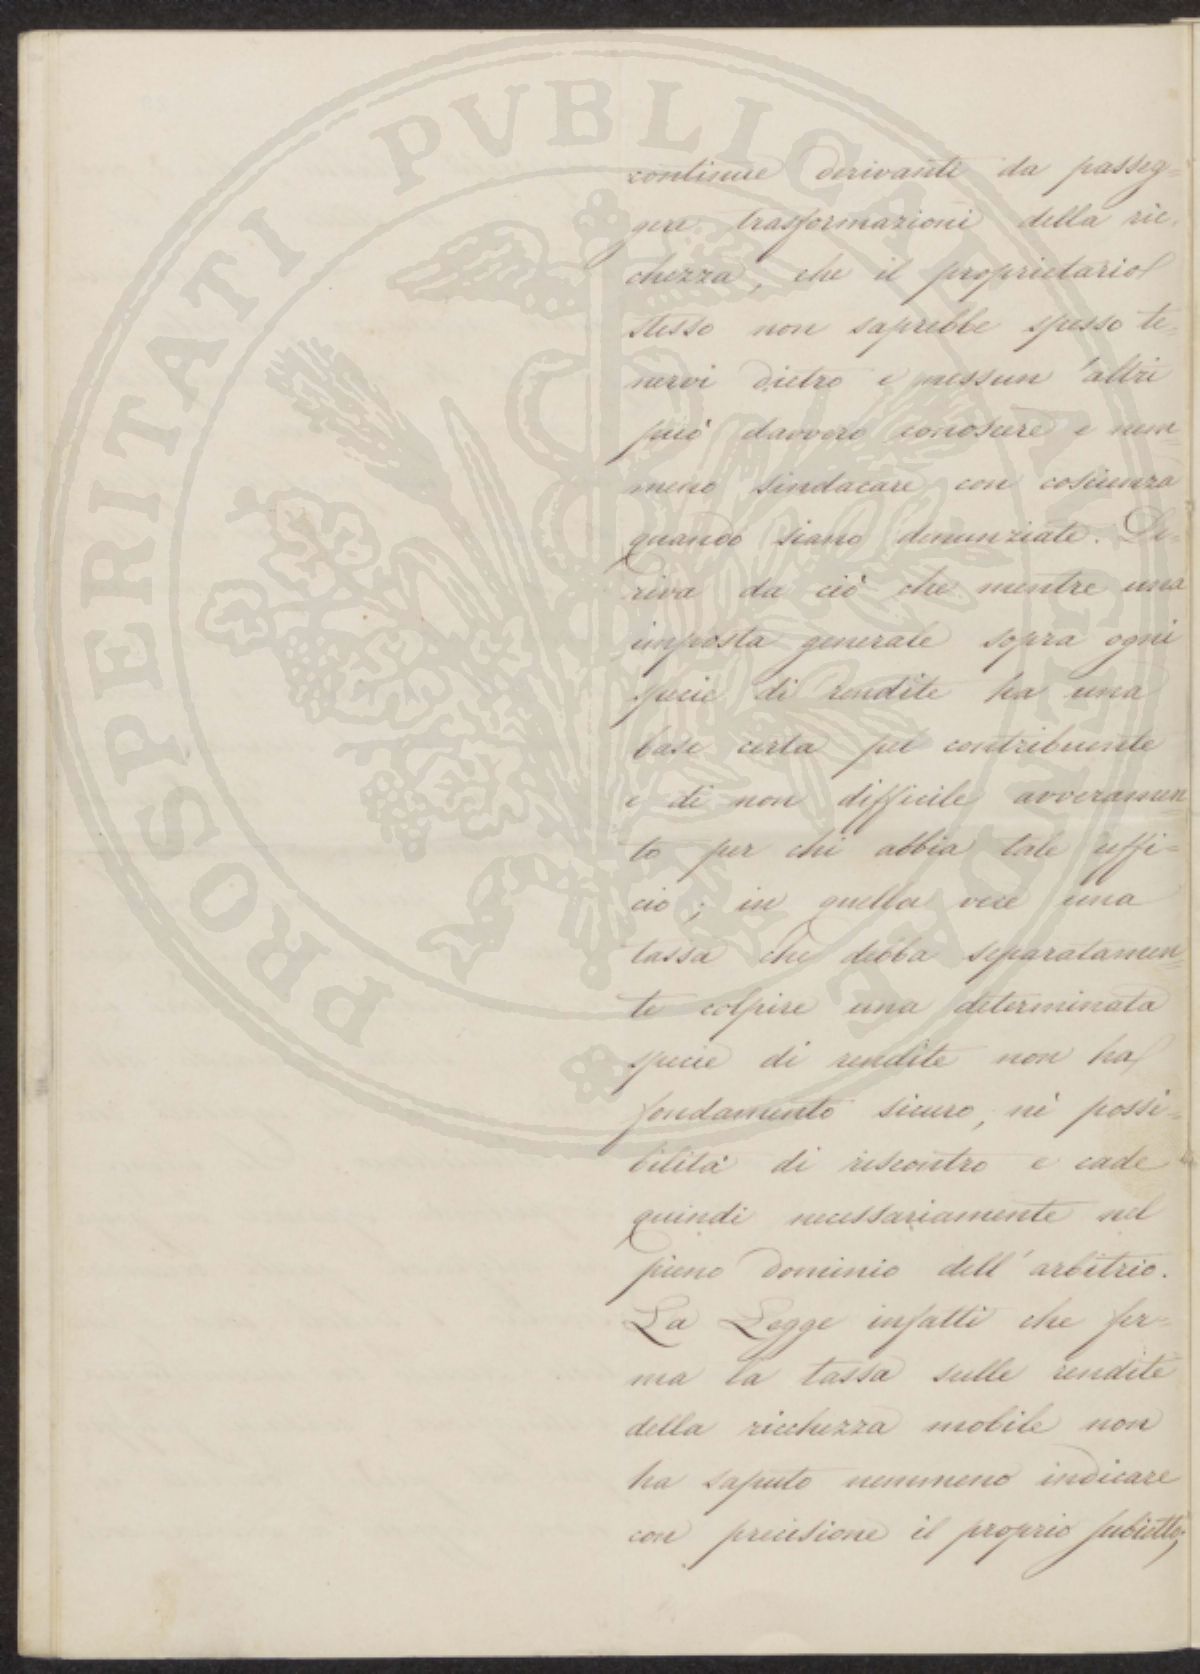 PROSPERITATI PVBLICAE AVGENDAE
continue derivante da passeg=
gere trasformazioni della ric=
chezza, che il proprietario
stesso non saprebbe spesso te=
nervi dietro e nessun'altri
può davvero conoscere e nem=
meno sindacare con coscienza
quando siano denunziate. De=
riva da ciò che mentre una
imposta generale sopra ogni
specie di rendite ha una
base certa pel contribuente
e di non difficile avveramen=
to per chi abbia tale uffi=
cio; in quella vece una
tassa che debba separatamen=
te colpire una determinata
specie di rendite non ha
fondamento sicuro, nè possi=
bilità di riscontro e cade
quindi necessariamente nel
pieno dominio dell'arbitrio.
La Legge infatti che fer=
ma la tassa sulle rendite
della ricchezza mobile non
ha saputo nemmeno indicare
con precisione il proprio subietto;